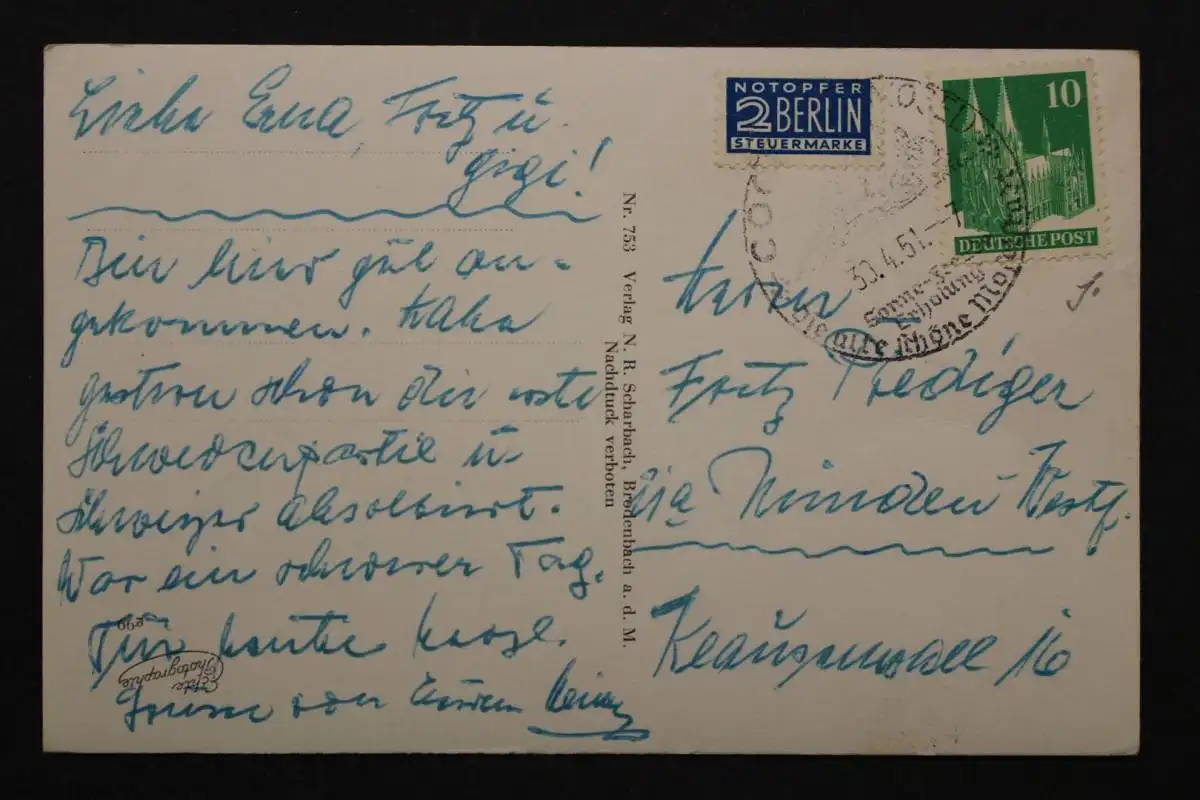 Liebe Erna, Fritz u.
gigi!
Bin hier gut an=
gekommen. Habe
gestern schon die erste
partie u.
absolviert.
War ein schwerer Tag.
Für heute herzl.
Grüsse von Eurem Heinz
Echte
Photographie
Nr. 753 Verlag N. R. Scharbach, Brodenbach a. d. M.
Nachdtuck verboten
NOTOPFER
2 BERLIN
STEUERMARKE
10
DEUTSCHE POST
30.4.51.
Sonne
Erholung
die schöne
Herrn
Fritz Rediger
Minden Westf.
Klausenwall 16